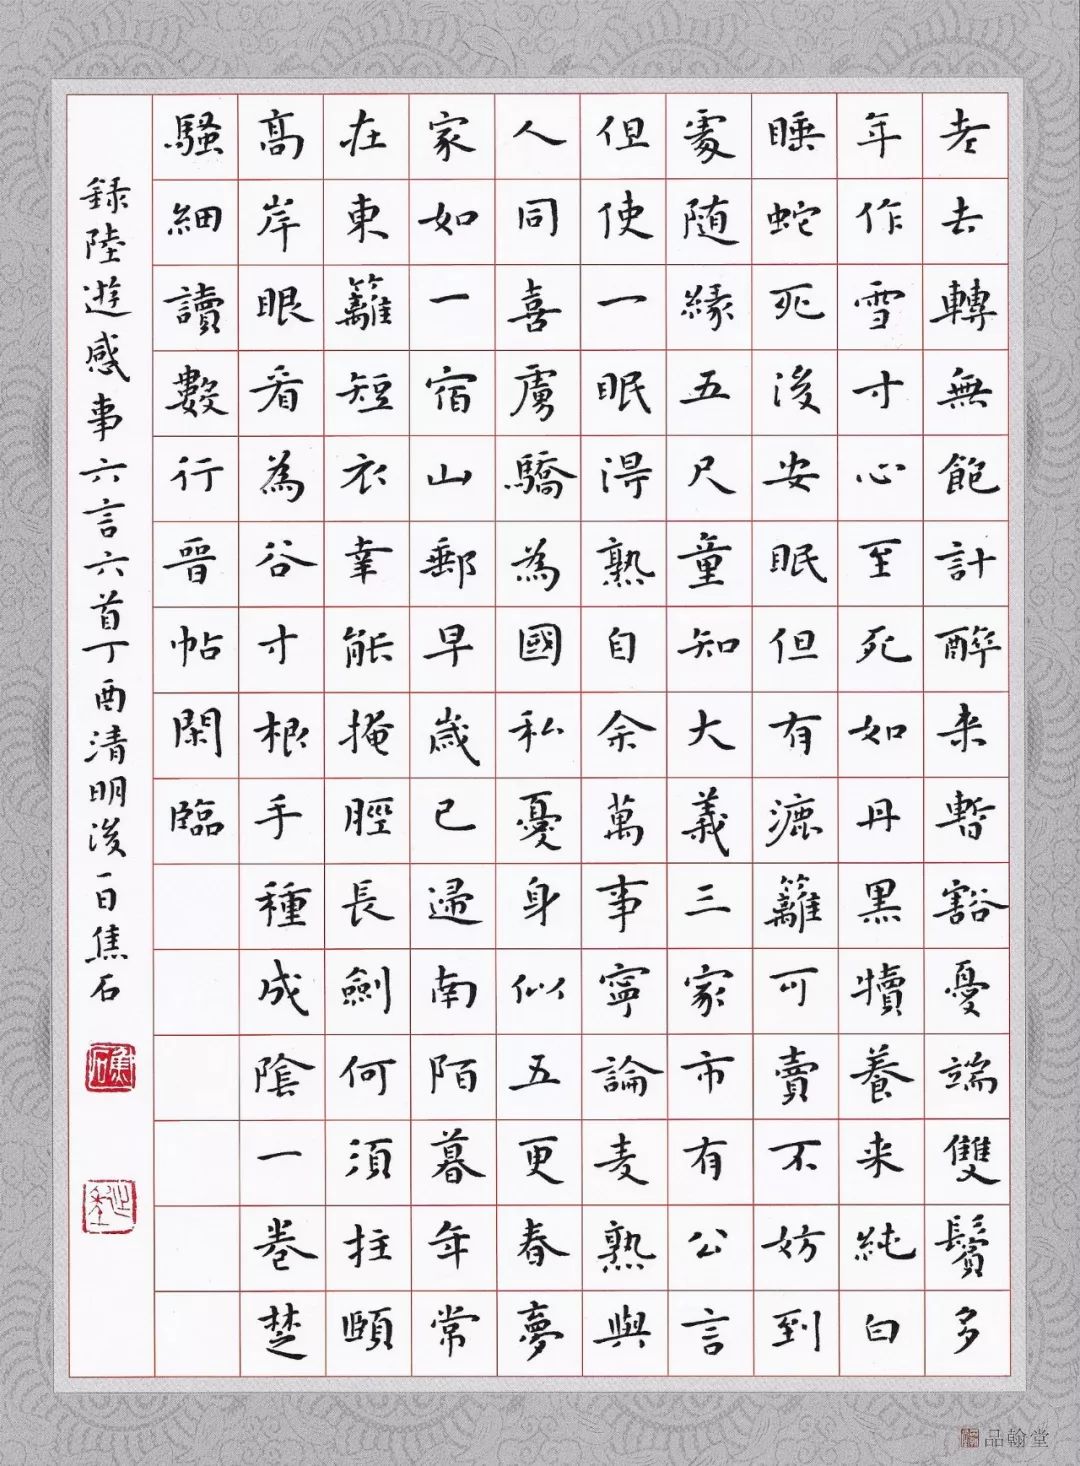 老去轉無飽計醉来暫豁憂端雙鬢多
年作雪寸心至死如丹黑犢養来純白
睡蛇死後安眠但有漉籬可賣不妨到
處随緣五尺童知大義三家市有公言
但使一眠得熟自余萬事寧論麦熟與
人同喜虜驕為國私憂身似五更春夢
家如一宿山郵早歲已歸南陌暮年常
在東籬短衣幸能掩脛長劍何須拄頤
高岸眼看為谷寸根手種成陰一卷楚
騷細讀數行晉帖閑臨
録陸遊感事六言六首丁酉清明後一日焦石
焦石
品翰堂